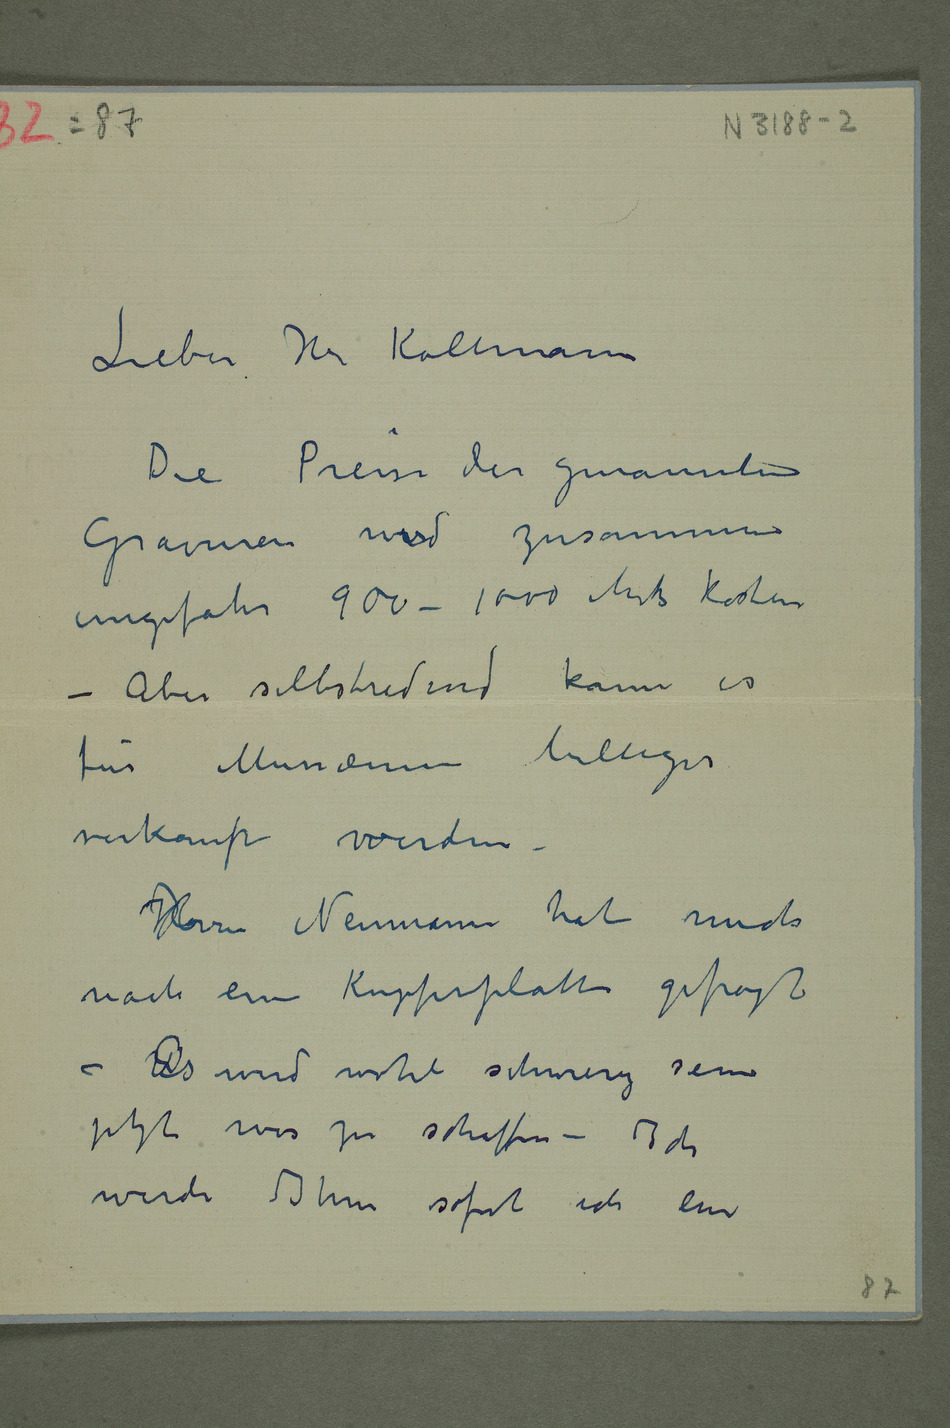 82 = 87
N 3188-2
Lieber Her Kollmann
Die Preise der genannten
Gravuren wird zusammen
ungefähr 900 – 1000 Mark kosten
– Aber selbstredend kann es
für Museum billiger
verkauft werden –
Herrn Neumann hat mich
nach ein Kupferplatte gefragt
– Es wird wohl schwierig sein
jetzt was zu schaffen – Ich
werde Ihnen sofort ich ein
87